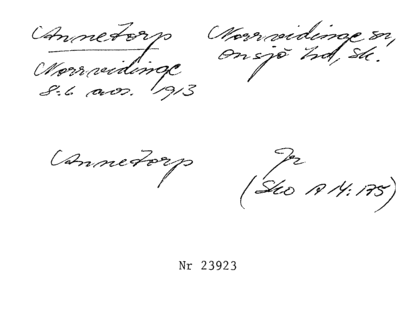 Annetorp Norrvidinge sn,
Norrvidinge Onsjö hd, Sk.
8:6 avs. 1913
Annetorp Jr
(Sko A IV: 175)
Nr 23923